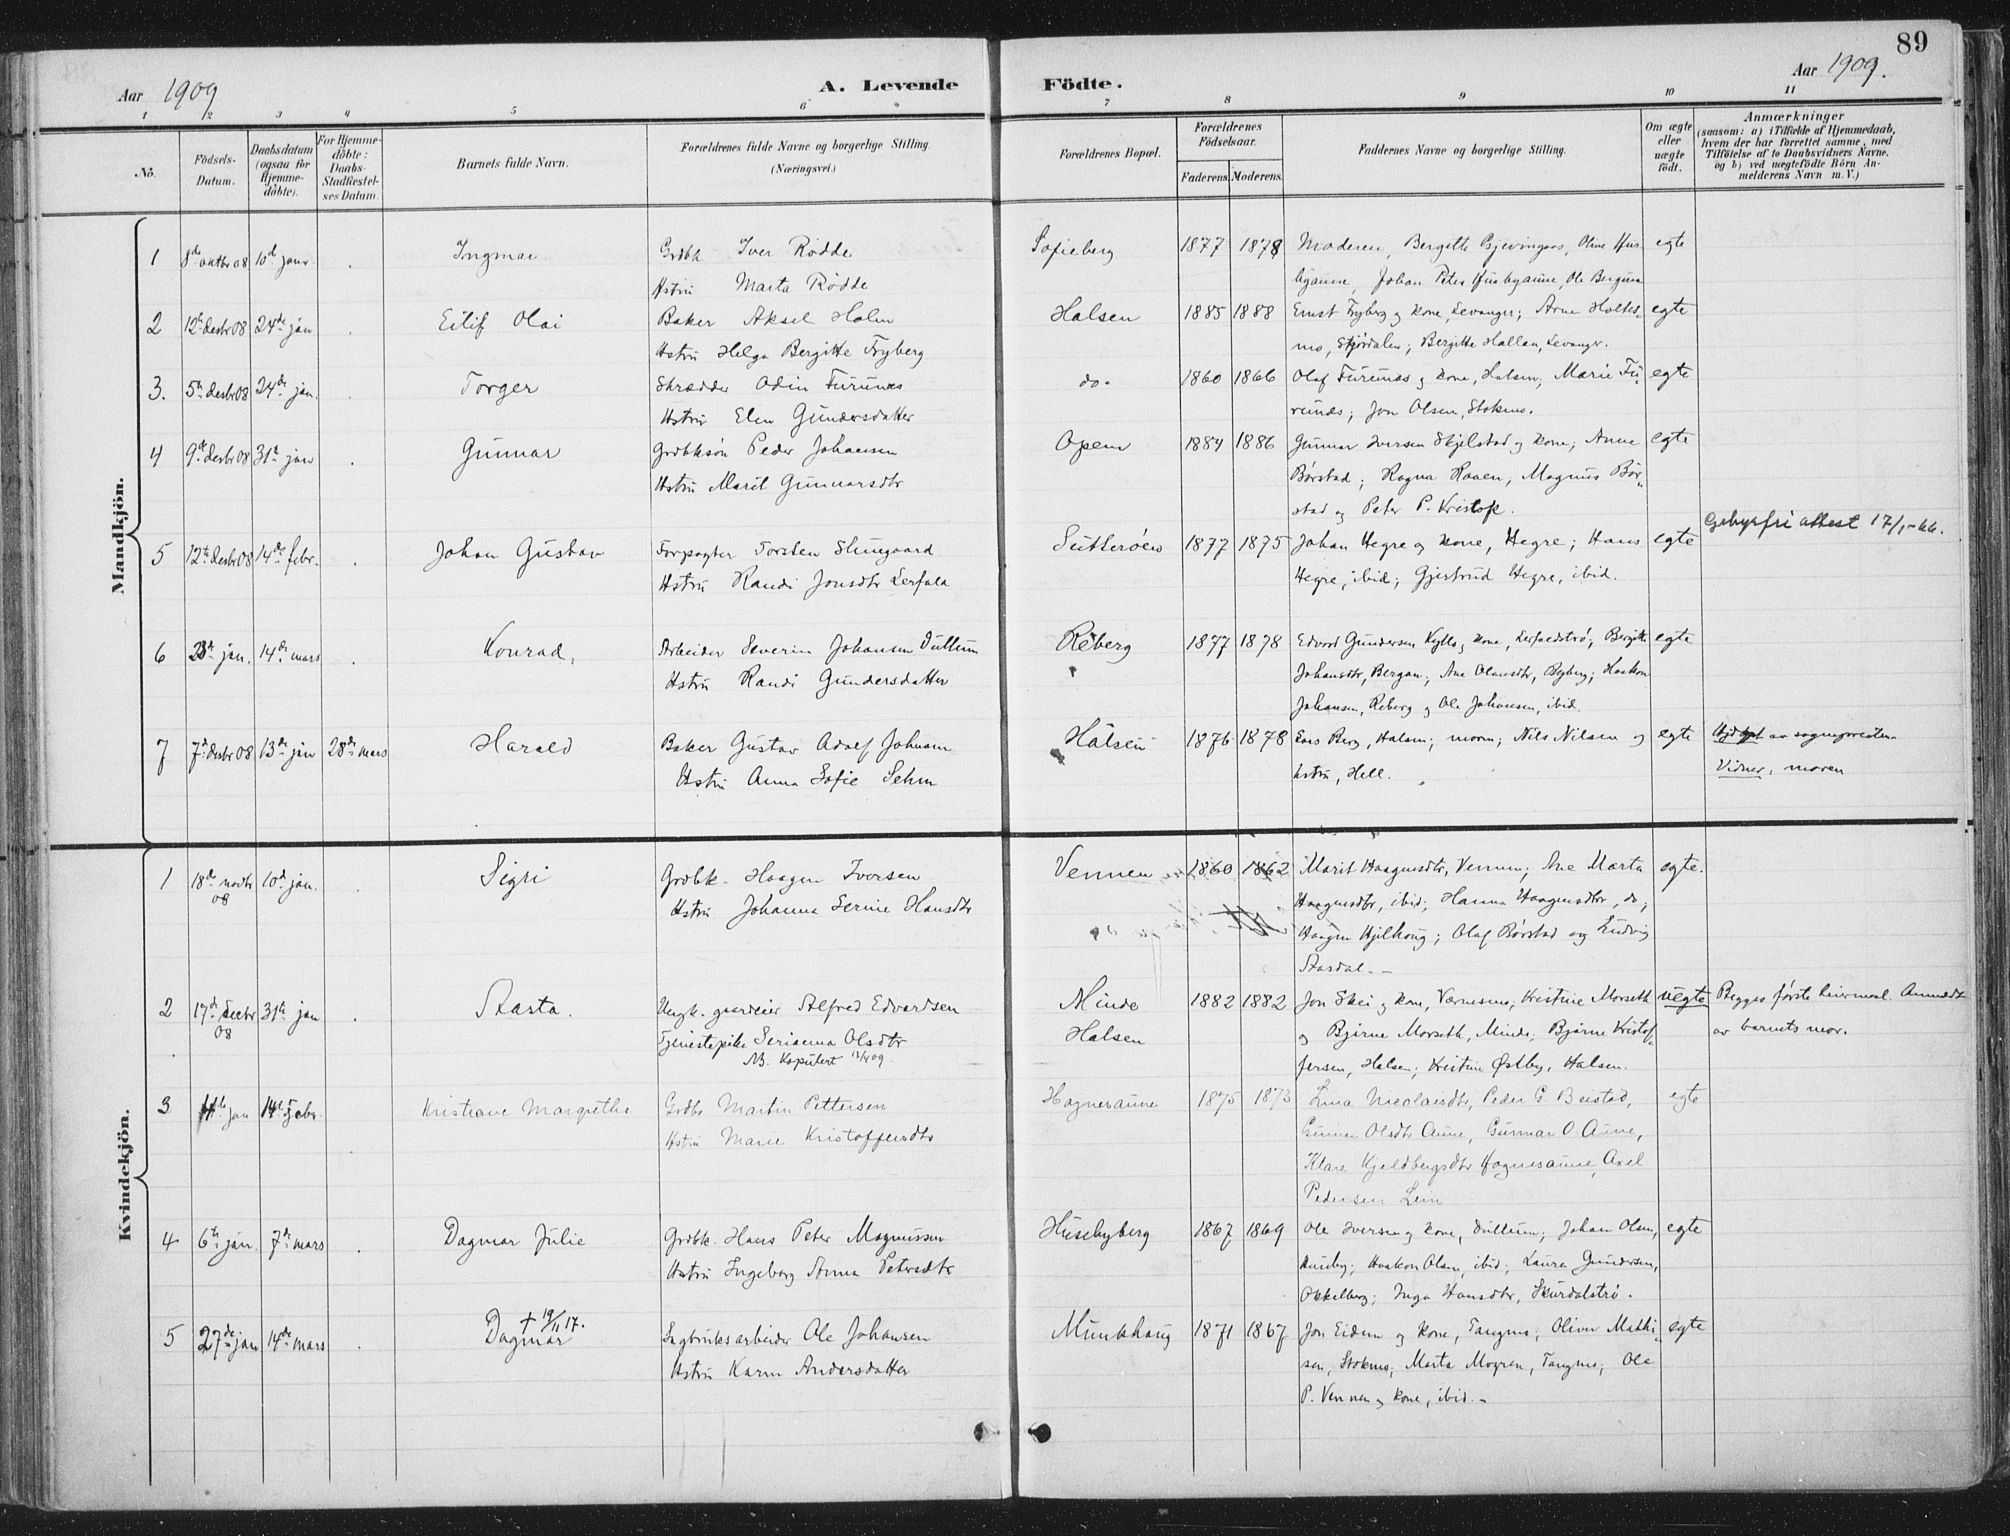 89
Aar 1909
A. Levende
Födte.
Aar 1909.
1 2 3 4 5 6 7 8 9 10 11
No.
Födsels-Datum.
Daabsdatum (ogsaa for Hjemmedöbte).
For Hjemmedöbte: Daabs-Stadfæstelses Datum.
Barnets fulde Navn.
Forældrenes fulde Navne og borgerlige Stilling. (Næringsvei.)
Forældrenes Bopæl.
Forældrenes Födselsaar.
Faderens. Moderens.
Faddernes Navne og borgerlige Stilling.
Om ægte eller uægte födt.
Anmærkninger
(saasom: a) i Tilfælde af Hjemmedaab, hvem der har forrettet samme, med Tilföielse af to Daabsvidners Navne. og b) ved uægtefödte Börn Anmelderens Navn m. V.)
Mandkjön.
1 8de oktbr 08 10d janr. Ingmar Grdbk Iver Rødde Sofieberg 1877 1878 Moderen, Bergitte, Oline Hus- egte
Hstru Marta Rødde byaune, Johan Peter Husbyaune, Ole
2 12te desbr 08 24de jan Eilif Olai Baker Aksel Holm Halsen 1885 1888 Ernst Fryberg og kone, Levanger; Arne Holtes- egte
Hstru Helga Bergitte Fryberg mo, Stjørdalen; Bergitte Hallan, Levangr.
3. 5te desbr 08 24de jan. Torger Skrædder Odin Furunes do. 1860 1866 Olaf Furunes og kone, Halsen; Marie Fu- egte
Hstru Elen Gundersdatter runes; Jon Olsen, Stokmo.
4 9de desbr 08 31te jan Gunnar Grdbksøn Peder Johansen Opem 1884 1886 Gunnar Iversen Skjelstad og kone; Anne egte
Hstru Marit Gunnarsdtr Børstad; Ragna Raaen, Magnus Bør-
stad og Peter P. Kristofr.
Gebyrfri attest 17/1-66.
5 12te desbr 08 14de febr. Johan Gustav Forpagter Torsten 1877 1875 Johan Hegre og kone, Hegre; Hans egte
Hstru Randi Jonsdtr Lerfald Hegre, ibid; Gjertrud Hegre, ibid.
6 jan. 14de mars Konrad, Arbeider Severin Johansen Dullum Reberg 1877 1878 Edvard Gundersen og kone, Bergitte egte
Hstru Randi Gundersdatter Johansdtr, Bergan; Ane Olausdtr, Byberg; Haakon
Johansen, Reberg og Ole Johansen, ibid.
7 7d desbr 08 13de jan 28de mars Harald Baker Gustav Adolf Johnsen Halsen 1876 1878 Lars Berg, Halsen; moren; Nils Nilsen og egte av sognepresten.
Hstru Anna Sofie Sehm hstru, Hell. Vidner: moren
Kvindekjön.
1 18de novbr 08 10d jan. Sigri Grdbk. Haagen Iversen Vennen 1860 1862 Marit Haagensdtr, Vennen; Ane Marta egte.
Hstru Johanna Serine Hansdtr Haagensdtr, ibid; Hanna Haagensdtr, do;
Haagen Hjelhoug; Olaf Børstad og Ludvig
Aasdal. –
2 17d decbr 08 31te jan Aasta. Ungk. gaardeier Alfred Edvardsen Minde 1882 1882 Jon Skei og kone, Værnesmo; Kristine Morseth uegte Begges første leiermaal. Anmeldt
Tjenestepike Serianna Olsdtr Halsen og Bjarne Morseth, Minde; Bjarne Kristof- av barnets mor.
NB. Kopulert 13/4 09. fersen, Halsen; Kristine Østby, Halsen.
3 11te jan 14de Febr. Kristiane Margrethe Grdbr Martin Pettersen Hognesaune 1875 1873 Lina Nicolaisdtr, Peder G Beistad, egte
Hstru Marie Kristoffersdtr Olsdtr Aune, Gunnar O. Aune,
Klare Kjeldbergsdtr Hognesaune, Axel
Pedersen Lein
4 6te jan. 7de mars Dagmar Julie Grdbk. Hans Peter Magnussen Husebyberg 1867 1869 Ole Iversen og kone, Dullum; Johan Olsen, egte
Hstru Ingeborg Anna Petersdtr Husby; Haakon Olsen, ibid; Laura Gundersen,
Okkelberg; Inga Hansdtr, Skurdalstrø.
† 19/11 17.
5 27de jan 14de mars Dagmar Sagbruksarbeider Ole Johansen Munkhaug 1871 1867 Jon Eidum og kone, Tangmo; Oliver Mathi- egte
Hstru Karen Andersdatter sen, Stokmo; Marta Mogren, Tangmo; Ole
P. Vennen og kone, ibid. –